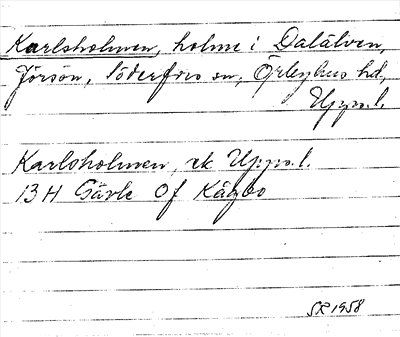 Karlsholmen, holme i Dalälven,
Jörsön, Söderfors sn, Örbyhus hd,
Upps.l.
Karlsholmen, ek Upps.l.
13 H Gävle Of Kågbo
SR 1958